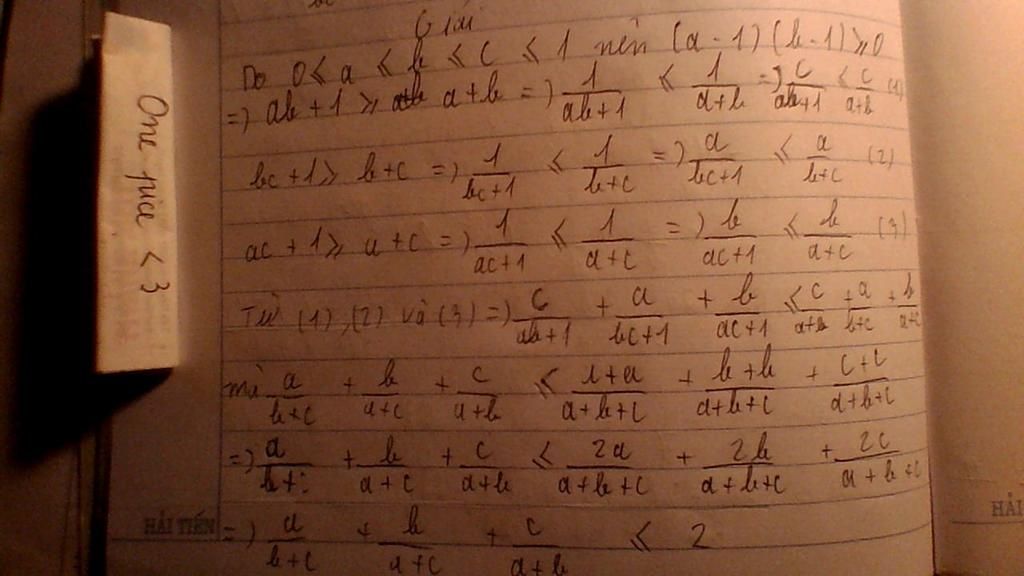 Giải
Do 0 ≤ a ≤ b ≤ c ≤ 1 nên (a-1)(b-1) ≥ 0
=) ab+1 ≥ a+b =) 1/(ab+1) ≤ 1/(a+b) =) c/(ab+1) ≤ c/(a+b) (1)
bc+1 ≥ b+c =) 1/(bc+1) ≤ 1/(b+c) =) a/(bc+1) ≤ a/(b+c) (2)
ac+1 ≥ a+c =) 1/(ac+1) ≤ 1/(a+c) =) b/(ac+1) ≤ b/(a+c) (3)
Từ (1),(2) và (3) =) c/(ab+1) + a/(bc+1) + b/(ac+1) ≤ c/(a+b) + a/(b+c) + b/(a+c)
mà a/(b+c) + b/(a+c) + c/(a+b) ≤ (a+a)/(a+b+c) + (b+b)/(a+b+c) + (c+c)/(a+b+c)
=) a/(b+c) + b/(a+c) + c/(a+b) ≤ 2a/(a+b+c) + 2b/(a+b+c) + 2c/(a+b+c)
=) a/(b+c) + b/(a+c) + c/(a+b) ≤ 2
One piece < 3
HẢI TIẾN
HẢI